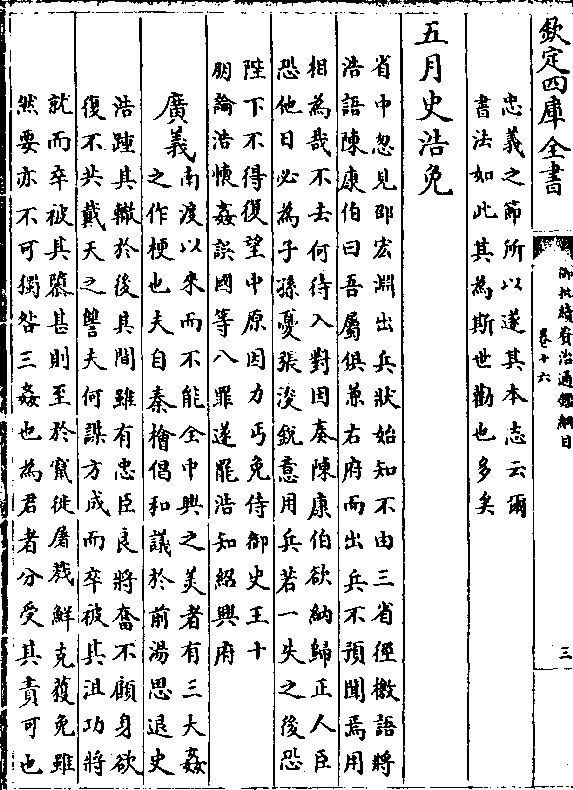 欽定四庫全書
御批續資治通鑑綱目
卷十六
三
忠義之節所以遂其本志云爾
書法如此其為斯世勸也多矣
五月史浩免
省中忽見邵宏淵出兵狀始知不由三省徑檄諸將
浩語陳康伯曰吾屬俱兼右府而出兵不預聞焉用
相為哉不去何待入對因奏陳康伯欲納歸正人臣
恐他日必為子孫憂張浚銳意用兵若一失之後恐
陛下不得復望中原因力丐免侍御史王十
朋論浩懷姦誤國等八罪遂罷浩知紹興府
廣義南渡以來而不能全中興之美者有三大姦
之作梗也夫自秦檜倡和議於前湯思退史
浩踵其轍於後其間雖有忠臣良將奮不顧身欲
復不共戴天之讐夫何謀方成而卒被其沮功將
就而卒被其隳甚則至於竄徙屠戮鮮克獲免雖
然要亦不可獨咎三姦也為君者分受其責可也